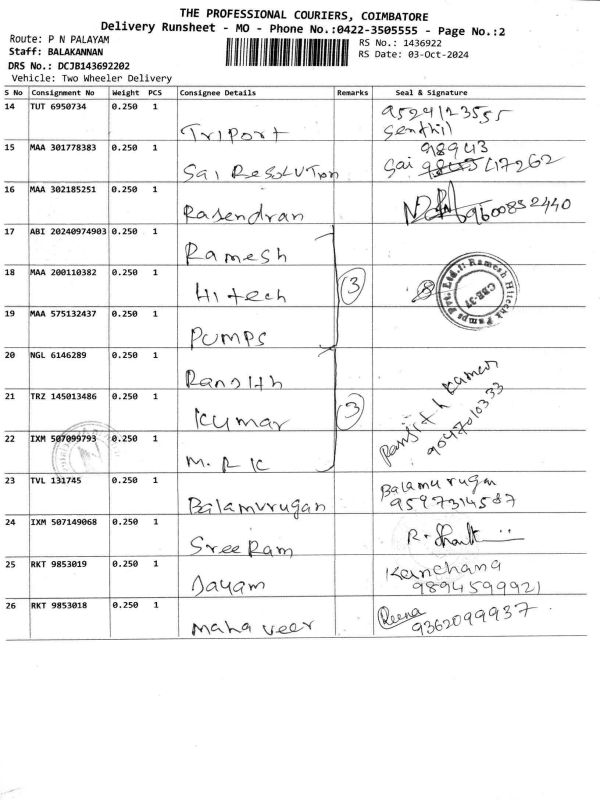 THE PROFESSIONAL COURIERS, COIMBATORE
Delivery Runsheet - MO - Phone No.:0422-3505555 - Page No.:2
Route: P N PALAYAM
RS No.: 1436922
Staff: BALAKANNAN
RS Date: 03-Oct-2024
DRS No.: DCJB143692202
Vehicle: Two Wheeler Delivery
S No Consignment No Weight PCS Consignee Details Remarks Seal & Signature
14 TUT 6950734 0.250 1 Triport 9524123555
Senthil
15 MAA 301778383 0.250 1 Sai Resolution 98943
Sai 17262
16 MAA 302185251 0.250 1 Rasendran 9600852440
17 ABI 20240974903 0.250 1 Ramesh
18 MAA 200110382 0.250 1 Hitech 3
Ramesh Hitech Pumps Pvt. Ltd.
CBE-37
19 MAA 575132437 0.250 1 PUMPS
20 NGL 6146289 0.250 1 Ranjith
21 TRZ 145013486 0.250 1 Kumar 3 Ranjith Kumar
9047010333
22 IXM 507099793 0.250 1 M.R.K
23 TVL 131745 0.250 1 Balamurugan Balamurugan
9597314587
24 IXM 507149068 0.250 1 Sree Ram
25 RKT 9853019 0.250 1 Jayam Kanchana
9894599921
26 RKT 9853018 0.250 1 Mahaveer Reena
9362099937